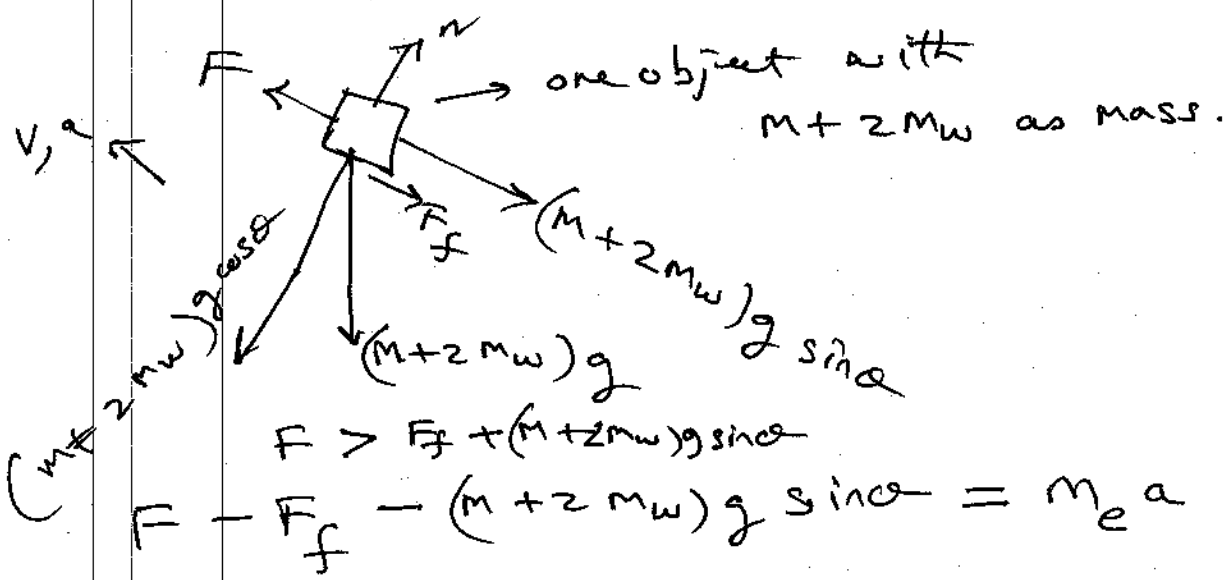 n
F → one object with
m + 2mw as mass.
v, a
Ff
(m + 2mw)g sinθ
(m + 2mw)g cosθ
(m + 2mw)g
F > Ff + (m + 2mw)g sinθ
F - Ff - (m + 2mw)g sinθ = me a